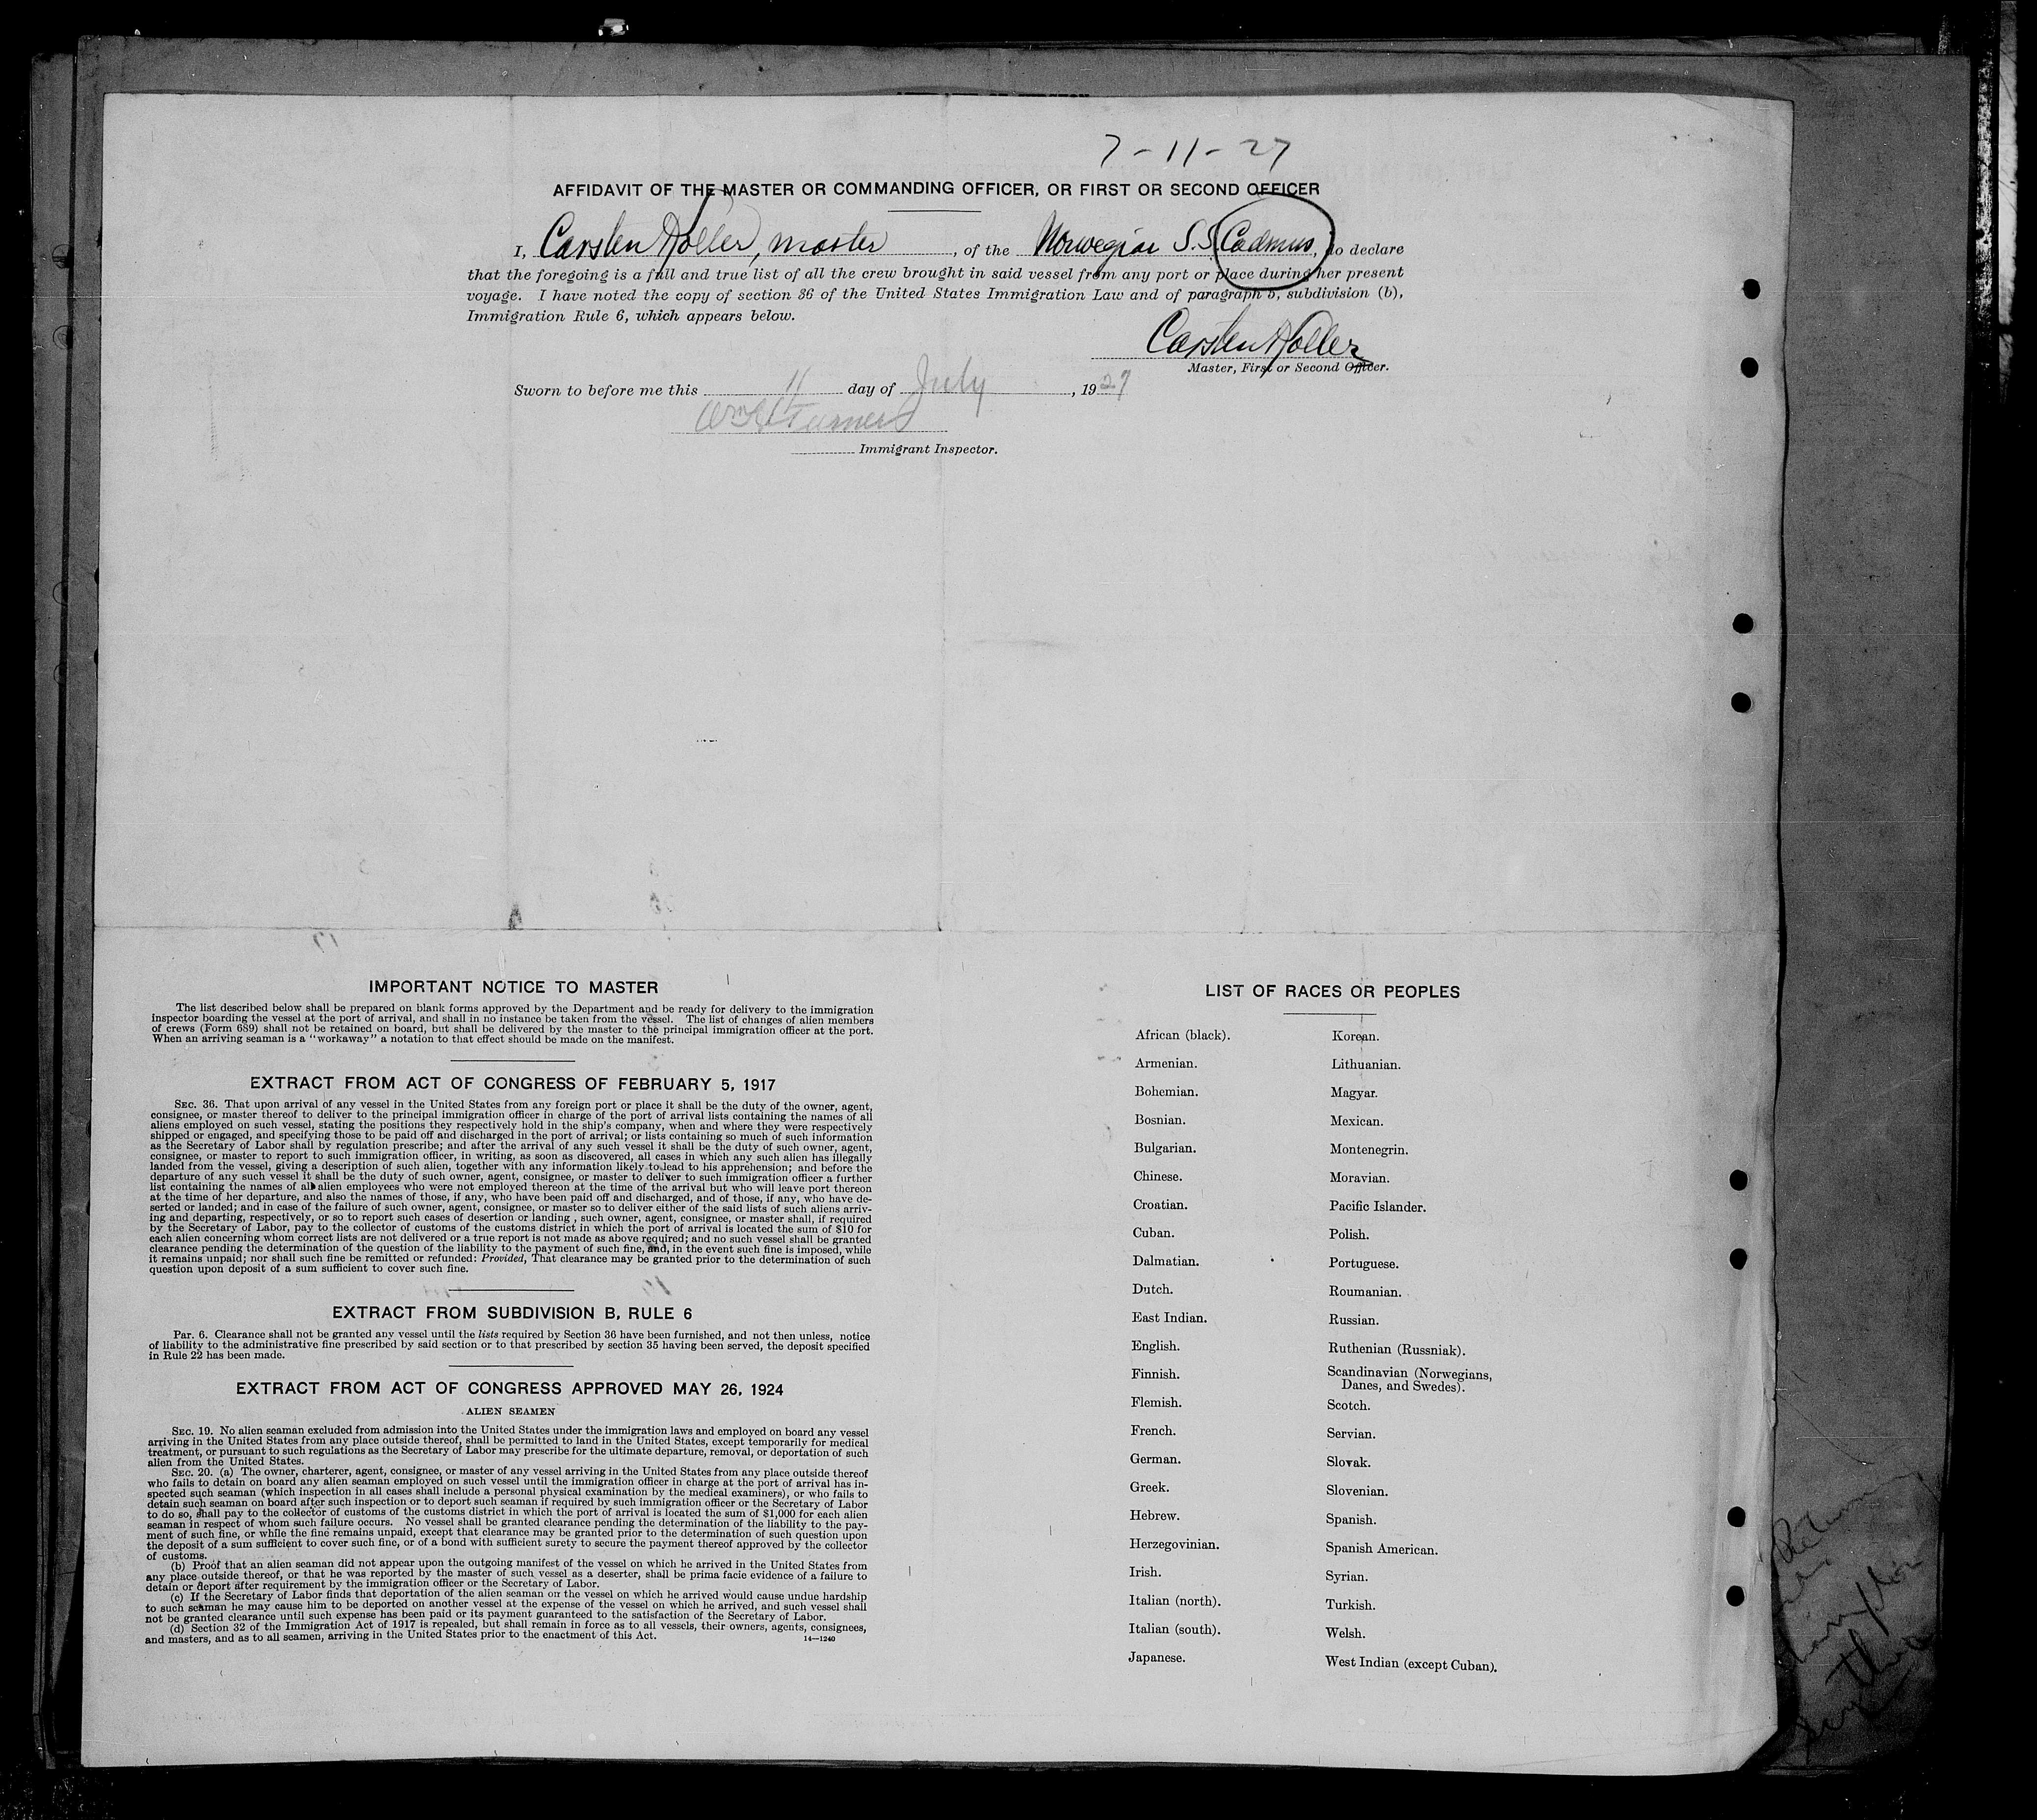 7-11-27
AFFIDAVIT OF THE MASTER OR COMMANDING OFFICER, OR FIRST OR SECOND OFFICER
I, Carsten Holler, master, of the Norwegian S.S. Cadmus, do declare
that the foregoing is a full and true list of all the crew brought in said vessel from any port or place during her present
voyage. I have noted the copy of section 36 of the United States Immigration Law and of paragraph 5, subdivision (b),
Immigration Rule 6, which appears below.
Carsten Holler
Master, First or Second Officer.
Sworn to before me this 11 day of July, 1927
Turner
Immigrant Inspector.
IMPORTANT NOTICE TO MASTER
The list described below shall be prepared on blank forms approved by the Department and be ready for delivery to the immigration
inspector boarding the vessel at the port of arrival, and shall in no instance be taken from the vessel. The list of changes of alien members
of crews (Form 689) shall not be retained on board, but shall be delivered by the master to the principal immigration officer at the port.
When an arriving seaman is a "workaway" a notation to that effect should be made on the manifest.
EXTRACT FROM ACT OF CONGRESS OF FEBRUARY 5, 1917
SEC. 36. That upon arrival of any vessel in the United States from any foreign port or place it shall be the duty of the owner, agent,
consignee, or master thereof to deliver to the principal immigration officer in charge of the port of arrival lists containing the names of all
aliens employed on such vessel, stating the positions they respectively hold in the ship's company, when and where they were respectively
shipped or engaged, and specifying those to be paid off and discharged in the port of arrival; or lists containing so much of such information
as the Secretary of Labor shall by regulation prescribe; and after the arrival of any such vessel it shall be the duty of such owner, agent,
consignee, or master to report to such immigration officer, in writing, as soon as discovered, all cases in which any such alien has illegally
landed from the vessel, giving a description of such alien, together with any information likely to lead to his apprehension; and before the
departure of any such vessel it shall be the duty of such owner, agent, consignee, or master to deliver to such immigration officer a further
list containing the names of all alien employees who were not employed thereon at the time of the arrival but who will leave port thereon
at the time of her departure, and also the names of those, if any, who have been paid off and discharged, and of those, if any, who have de-
serted or landed; and in case of the failure of such owner, agent, consignee, or master so to deliver either of the said lists of such aliens arriv-
ing and departing, respectively, or so to report such cases of desertion or landing, such owner, agent, consignee, or master shall, if required
by the Secretary of Labor, pay to the collector of customs of the customs district in which the port of arrival is located the sum of $10 for
each alien concerning whom correct lists are not delivered or a true report is not made as above required; and no such vessel shall be granted
clearance pending the determination of the question of the liability to the payment of such fine, and, in the event such fine is imposed, while
it remains unpaid; nor shall such fine be remitted or refunded: Provided, That clearance may be granted prior to the determination of such
question upon deposit of a sum sufficient to cover such fine.
EXTRACT FROM SUBDIVISION B, RULE 6
Par. 6. Clearance shall not be granted any vessel until the lists required by Section 36 have been furnished, and not then unless, notice
of liability to the administrative fine prescribed by said section or to that prescribed by section 35 having been served, the deposit specified
in Rule 22 has been made.
EXTRACT FROM ACT OF CONGRESS APPROVED MAY 26, 1924
ALIEN SEAMEN
SEC. 19. No alien seaman excluded from admission into the United States under the immigration laws and employed on board any vessel
arriving in the United States from any place outside thereof, shall be permitted to land in the United States, except temporarily for medical
treatment, or pursuant to such regulations as the Secretary of Labor may prescribe for the ultimate departure, removal, or deportation of such
alien from the United States.
SEC. 20. (a) The owner, charterer, agent, consignee, or master of any vessel arriving in the United States from any place outside thereof
who fails to detain on board any alien seaman employed on such vessel until the immigration officer in charge at the port of arrival has in-
spected such seaman (which inspection in all cases shall include a personal physical examination by the medical examiners), or who fails to
detain such seaman on board after such inspection or to deport such seaman if required by such immigration officer or the Secretary of Labor
to do so, shall pay to the collector of customs of the customs district in which the port of arrival is located the sum of $1,000 for each alien
seaman in respect of whom such failure occurs. No vessel shall be granted clearance pending the determination of the liability to the pay-
ment of such fine, or while the fine remains unpaid, except that clearance may be granted prior to the determination of such question upon
the deposit of a sum sufficient to cover such fine, or of a bond with sufficient surety to secure the payment thereof approved by the collector
of customs.
(b) Proof that an alien seaman did not appear upon the outgoing manifest of the vessel on which he arrived in the United States from
any place outside thereof, or that he was reported by the master of such vessel as a deserter, shall be prima facie evidence of a failure to
detain or deport after requirement by the immigration officer or the Secretary of Labor.
(c) If the Secretary of Labor finds that deportation of the alien seaman on the vessel on which he arrived would cause undue hardship
to such seaman he may cause him to be deported on another vessel at the expense of the vessel on which he arrived, and such vessel shall
not be granted clearance until such expense has been paid or its payment guaranteed to the satisfaction of the Secretary of Labor.
(d) Section 32 of the Immigration Act of 1917 is repealed, but shall remain in force as to all vessels, their owners, agents, consignees,
and masters, and as to all seamen, arriving in the United States prior to the enactment of this Act.
14—1240
LIST OF RACES OR PEOPLES
African (black).
Armenian.
Bohemian.
Bosnian.
Bulgarian.
Chinese.
Croatian.
Cuban.
Dalmatian.
Dutch.
East Indian.
English.
Finnish.
Flemish.
French.
German.
Greek.
Hebrew.
Herzegovinian.
Irish.
Italian (north).
Italian (south).
Japanese.
Korean.
Lithuanian.
Magyar.
Mexican.
Montenegrin.
Moravian.
Pacific Islander.
Polish.
Portuguese.
Roumanian.
Russian.
Ruthenian (Russniak).
Scandinavian (Norwegians,
Danes, and Swedes).
Scotch.
Servian.
Slovak.
Slovenian.
Spanish.
Spanish American.
Syrian.
Turkish.
Welsh.
West Indian (except Cuban).